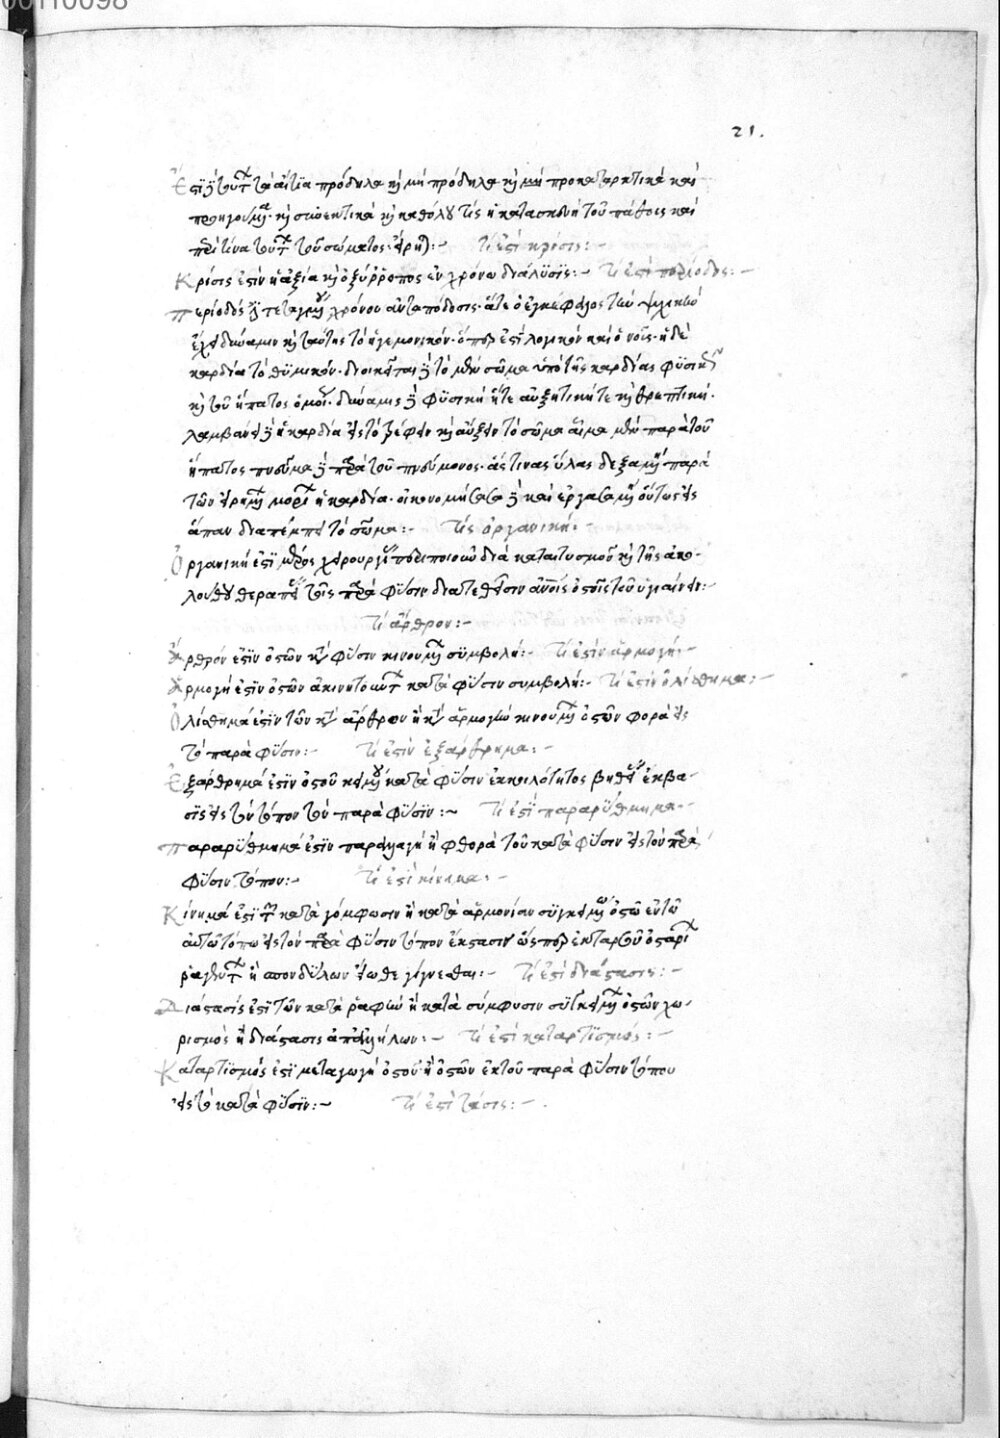 00110098
21.
Ἔστι δὲ τούτων τὰ αἴτια πρόδηλα καὶ μὴ πρόδηλα καὶ προκαταρκτικὰ καὶ
προηγούμενα καὶ συνεκτικὰ καὶ καθόλου τίς ἡ κατασκευὴ τοῦ πάθους καὶ
περὶ τίνα τούτων τοῦ σώματος εἴρηται:- Τί ἐστι κρίσις:-
Κρίσις ἐστὶν ἡ ἀξία καὶ ὀξύρροπος ἐν χρόνω διάλυσις:- Τί ἐστι περίοδος:-
περίοδος δὲ τεταγμένου χρόνου ἀνταπόδοσις. ἅτε ὁ ἐγκέφαλος τὴν ψυχικὴν
ἔχει δύναμιν καὶ ταύτης τὸ ἡγεμονικόν. ὅπερ ἐστὶ λογικὸν καὶ ὁ νοῦς. ἡ δὲ
καρδία τὸ θυμικόν. διοικεῖται δὲ τὸ μὲν σῶμα ὑπὸ τῆς καρδίας φύσει
καὶ τοῦ ἥπατος ὁμοίως. δύναμις δὲ φυσικὴ ἥτε αὐξητική τε καὶ θρεπτική.
λαμβάνει δὲ ἡ καρδία εἰς τὸ τρέφειν καὶ αὔξειν τὸ σῶμα αἷμα μὲν παρὰ τοῦ
ἥπατος πνεῦμα δὲ παρὰ τοῦ πνεύμονος. ἅς τινας ὕλας δεξαμένη παρὰ
τῶν εἰρημένων μορίων ἡ καρδία. οἰκονομήσασα δὲ καὶ ἐργασαμένη οὕτως εἰς
ἅπαν διαπέμπει τὸ σῶμα:- Τίς ὀργανική:-
Ὀργανική ἐστι μέρος χειρουργίας περιποιοῦν διὰ καταρτισμοῦ καὶ τῆς ἀκο-
λούθου θεραπείας τοῖς παρὰ φύσιν διατεθεῖσιν ὀστοῖς τοῦ ὑγιαίνειν:-
Τί ἄρθρον:-
Ἄρθρόν ἐστιν ὀστῶν κατὰ φύσιν κινουμένων συμβολή:- Τί ἐστιν ἁρμογή:-
Ἁρμογή ἐστιν ὀστῶν ἀκινήτων ὄντων κατὰ φύσιν συμβολή:- Τί ἐστιν ὀλίσθημα:-
Ὀλίσθημά ἐστιν τῶν κατὰ ἄρθρων ἢ κατὰ ἁρμογὴν κινουμένων ὀστῶν φορὰ εἰς
τὸ παρὰ φύσιν:- Τί ἐστιν ἐξάρθρημα:-
Ἐξάρθρημά ἐστιν ὀστοῦ κειμένου κατὰ φύσιν ἐκ κοιλότητος βαθείας ἔκβα-
σις εἰς τὸν τόπον τὸν παρὰ φύσιν:~ Τί ἐστι παραρύθμημα.-
παραρύθμημά ἐστιν παραλλαγὴ ἢ φθορὰ τοῦ κατὰ φύσιν εἰς τὸν παρὰ
φύσιν τόπον:- Τί ἐστι κίνημα:-
Κίνημά ἐστι τῶν κατὰ γόμφωσιν ἢ κατὰ ἁρμονίαν συγκειμένων ὀστῶν ἐν τῶ
αὐτῶ τόπω εἰς τὸν παρὰ φύσιν τόπον ἔκστασιν ὥσπερ ἐκ ταρσοῦ ὀσταρίων
ῥαγέντων ἢ σπονδύλων εἴωθε γίγνεσθαι:- Τί ἐστι διάστασις:-
Διάστασίς ἐστι τῶν κατὰ ῥαφὴν ἢ κατὰ σύμφυσιν συγκειμένων ὀστῶν χω-
ρισμὸς ἢ διάστασις ἀπ' ἀλλήλων:- Τί ἐστι καταρτισμός:-
Καταρτισμός ἐστι μεταγωγὴ ὀστοῦ ἢ ὀστῶν ἐκ τοῦ παρὰ φύσιν τόπου
εἰς τὸ κατὰ φύσιν:~ Τί ἐστι τάσις:-